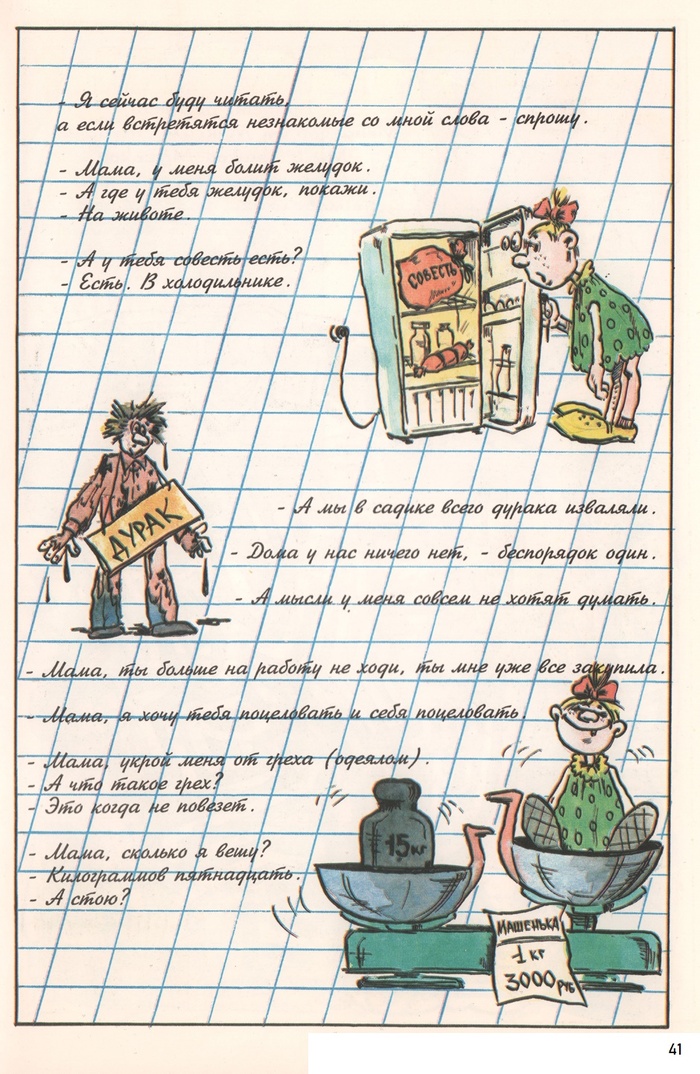 - Я сейчас буду читать,
а если встретятся незнакомые со мной слова - спрошу.
- Мама, у меня болит желудок.
- А где у тебя желудок, покажи.
- На животе.
- А у тебя совесть есть?
- Есть. В холодильнике.
СОВЕСТЬ
ДУРАК
- А мы в садике всего дурака изваляли.
- Дома у нас ничего нет, - беспорядок один.
- А мысли у меня совсем не хотят думать.
- Мама, ты больше на работу не ходи, ты мне уже все закупила.
- Мама, я хочу тебя поцеловать и себя поцеловать.
- Мама, укрой меня от греха (одеялом).
- А что такое грех?
- Это когда не повезет.
- Мама, сколько я вешу?
- Килограммов пятнадцать.
- А стою?
15 кг
МАШЕНЬКА
1 кг
3000 РУБ
41